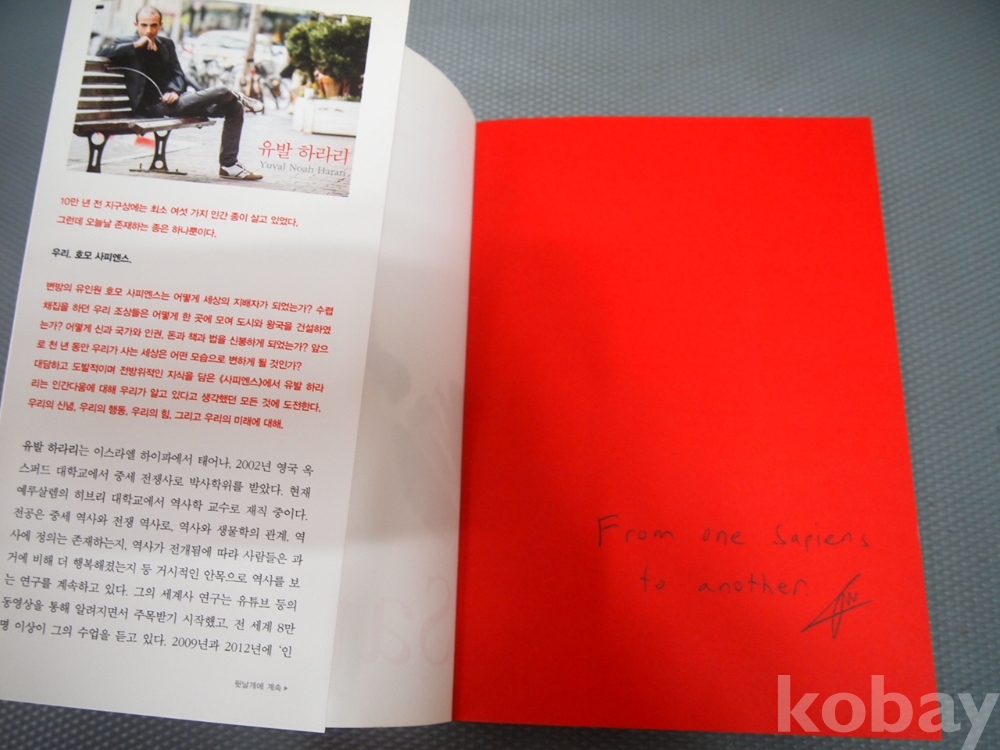 유발 하라리
Yuval Noah Harari
10만 년 전 지구상에는 최소 여섯 가지 인간 종이 살고 있었다.
그런데 오늘날 존재하는 종은 하나뿐이다.
우리, 호모 사피엔스.
변방의 유인원 호모 사피엔스는 어떻게 세상의 지배자가 되었는가? 수렵
채집을 하던 우리 조상들은 어떻게 한 곳에 모여 도시와 왕국을 건설하였
는가? 어떻게 신과 국가와 인권, 돈과 책과 법을 신봉하게 되었는가? 앞으
로 천 년 동안 우리가 사는 세상은 어떤 모습으로 변하게 될 것인가?
대담하고 도발적이며 전방위적인 지식을 담은 《사피엔스》에서 유발 하라
리는 인간다움에 대해 우리가 알고 있다고 생각했던 모든 것에 도전한다.
우리의 신념, 우리의 행동, 우리의 힘, 그리고 우리의 미래에 대해.
유발 하라리는 이스라엘 하이파에서 태어나, 2002년 영국 옥
스퍼드 대학교에서 중세 전쟁사로 박사학위를 받았다. 현재
예루살렘의 히브리 대학교에서 역사학 교수로 재직 중이다.
전공은 중세 역사와 전쟁 역사로, 역사와 생물학의 관계, 역
사에 정의는 존재하는지, 역사가 전개됨에 따라 사람들은 과
거에 비해 더 행복해졌는지 등 거시적인 안목으로 역사를 보
는 연구를 계속하고 있다. 그의 세계사 연구는 유튜브 등의
동영상을 통해 알려지면서 주목받기 시작했고, 전 세계 8만
명 이상이 그의 수업을 듣고 있다. 2009년과 2012년에 '인
뒷날개에 계속 ▶
From one Sapiens
to another
kobay